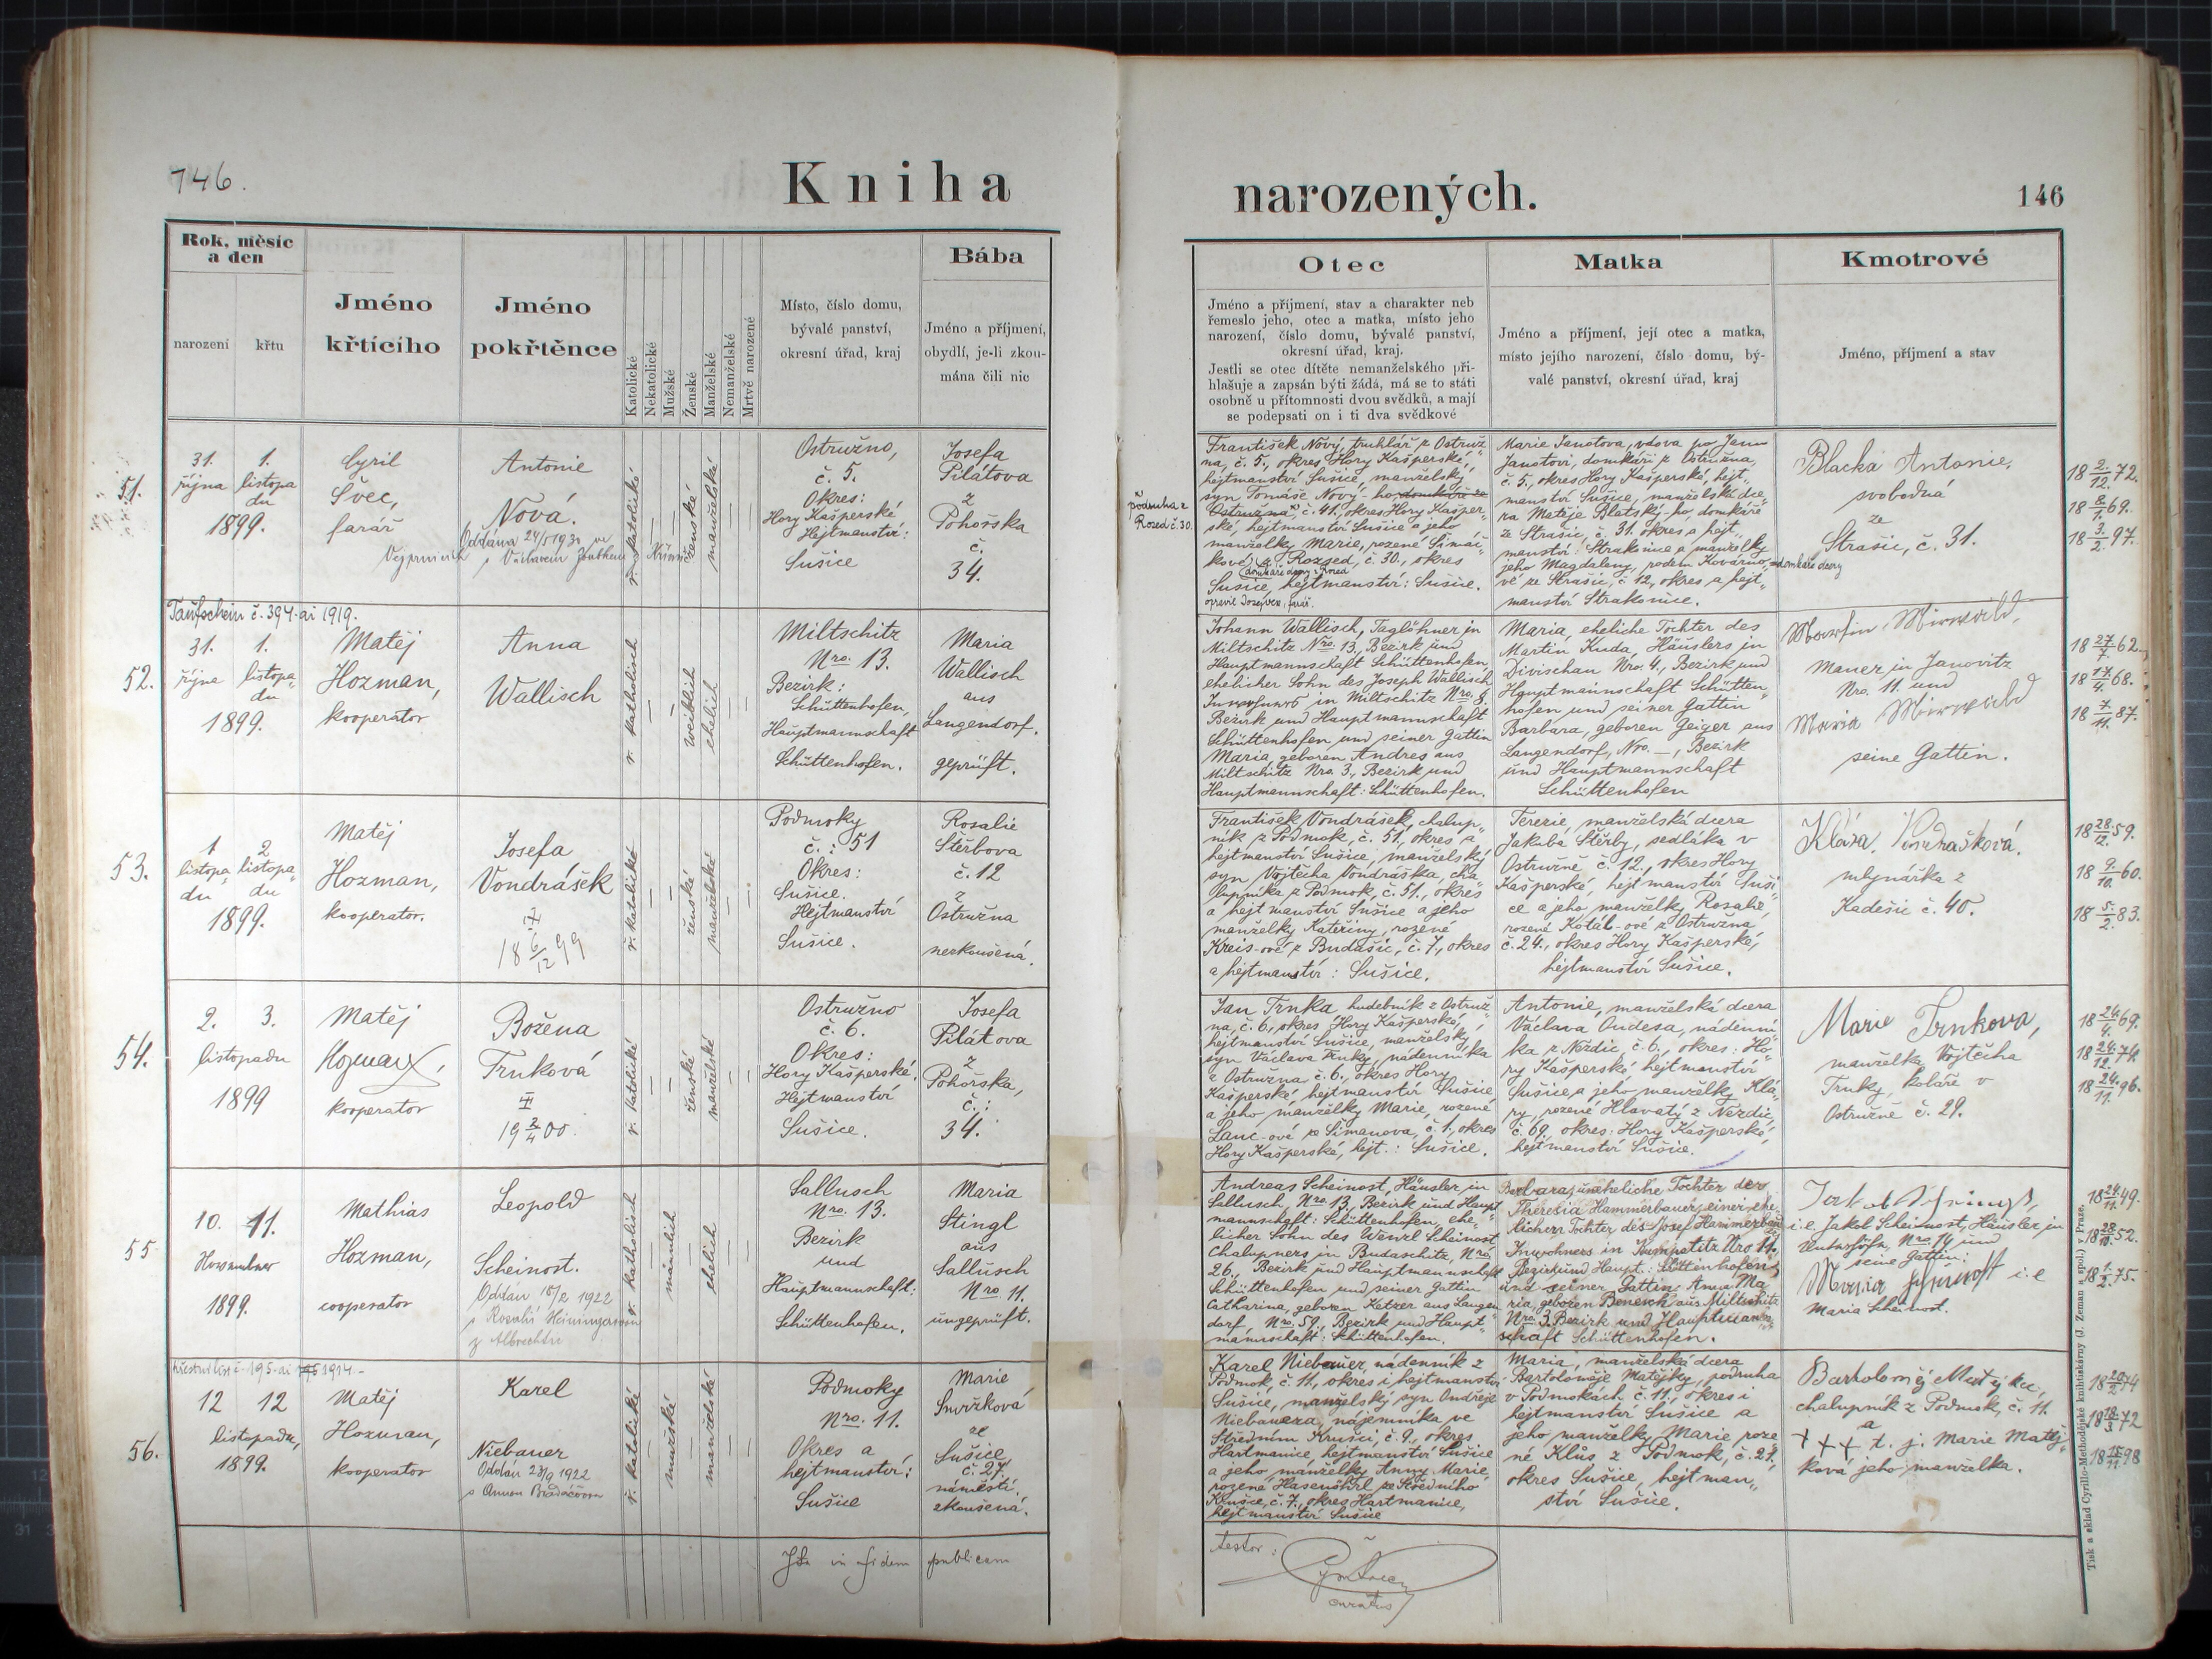 746.
Kniha
narozených.
146
Rok, měsíc
a den
narození
křtu
Jméno
křtícího
Jméno
pokřtěnce
Katolické
Nekatolické
Mužské
Ženské
Manželské
Nemanželské
Mrtvě narozené
Místo, číslo domu,
bývalé panství,
okresní úřad, kraj
Bába
Jméno a příjmení,
obydlí, je-li zkou-
mána čili nic
Otec
Jméno a příjmení, stav a charakter neb
řemeslo jeho, otec a matka, místo jeho
narození, číslo domu, bývalé panství,
okresní úřad, kraj.
Jestli se otec dítěte nemanželského při-
hlašuje a zapsán býti žádá, má se to státi
osobně u přítomnosti dvou svědků, a mají
se podepsati on i ti dva svědkové
Matka
Jméno a příjmení, její otec a matka,
místo jejího narození, číslo domu, bý-
valé panství, okresní úřad, kraj
Kmotrové
Jméno, příjmení a stav
51.
31. 1.
října listopa
du
1899.
Cyril
Švec,
farář
Antonie
Nová.
Oddána 24/5 1930 ve
s Václavem
ř. katolické
ženské
manželské
Ostružno,
č. 5.
Okres:
Hory Kašperské
Hejtmanství:
Sušice
Josefa
Pilátova
z
Pohorska
č.
34.
podruha z
Rozed č. 30.
František Nový, truhlář z Ostruž„
na, č. 5., okres Hory Kašperské,
hejtmanství Sušice, manželský
syn Tomáše Nový-ho, domkáře ze
Ostružna, č. 41., okres Hory Kašper„
ské, hejtmanství Sušice a jeho
manželky Marie, rozené Šimáč„
kové z Rozsed, č. 30., okres
Sušice, hejtmanství: Sušice.
Marie Janotova, vdova po Janu
Janotovi, domkáři z Ostružna,
č. 5., okres Hory Kašperské, hejt„
manství Sušice, manželská dce„
ra Matěje Blatský-ho, domkáře
ze Strašic, č. 31. okres a hejt„
manství: Strakonice a manželky
jeho Magdaleny, rozen. Kovářno„
vé ze Strašic, č 12, okres a hejt„
manství Strakonice.
domkáře dcery
Blacká Antonie,
svobodná
ze
Strašic, č. 31.
18 2/12 72.
18 8/1 69.
18 3/2 97.
Taufschein č. 394 ai 1919.
52.
31. 1.
října listopa„
du
1899.
Matěj
Hozman,
kooperator
Anna
Wallisch
r. katholisch
weiblich
ehelich
Miltschitz
Nro. 13.
Bezirk:
Schüttenhofen,
Hauptmannschaft
Schüttenhofen.
Maria
Wallisch
aus
Langendorf.
geprüft.
Johann Wallisch, Taglöhner in
Miltschitz Nro. 13., Bezirk und
Hauptmannschaft Schüttenhofen,
ehelicher Sohn des Joseph Wallisch
Inwohners in Miltschitz Nro. 8.
Bezirk und Hauptmannschaft
Schüttenhofen und seiner Gattin
Maria geboren Andres aus
Miltschitz Nro. 3., Bezirk und
Hauptmannschaft: Schüttenhofen.
Maria, eheliche Tochter des
Martin Kuda, Häuslers in
Divischau Nro. 4., Bezirk und
Hauptmannschaft Schütten„
hofen und seiner Gattin
Barbara, geboren Geiger aus
Langendorf, Nro. —, Bezirk
und Hauptmannschaft
Schüttenhofen
Martin Mirwald,
Maurer in Janovitz
Nro. 11. und
Maria Mirwald
seine Gattin.
18 27/7 62.
18 17/4 68.
18 7/11 87.
53.
1 2.
listopa„ listopa„
du du
1899.
Matěj
Hozman,
kooperator.
Josefa
Vondrášek
†
18 6/12 99
ř. katolické
ženské
manželské
Podmoky
č.: 51
Okres:
Sušice.
Hejtmanství
Sušice.
Rosalie
Štěrbova
č. 12
z
Ostružna
nezkoušená.
František Vondrášek, chalup„
ník z Podmok, č. 51., okres a
hejtmanství Sušice, manželský
syn Vojtěcha Vondráška, cha„
lupníka z Podmok, č. 51., okres
a hejtmanství Sušice a jeho
manželky Kateřiny, rozené
Kreis-ové z Budašic, č. 7., okres
a hejtmanství: Sušice.
Terezie, manželská dcera
Jakuba Štěrby, sedláka v
Ostružně č. 12., okres Hory
Kašperské, hejtmanství Suši
ce a jeho manželky Rosalie,
rozené Kotál-ové z Ostružna
č. 24., okres Hory Kašperské,
hejtmanství Sušice.
Klára Vondrašková.
mlynářka z
Kadešic č. 40.
18 28/12 59.
18 9/10 60.
18 5/2 83.
54.
2. 3.
listopadu
1899
Matěj
Hozman,
kooperator
Božena
Trnková
†
19 2/4 00.
ř. katolické
ženské
manželské
Ostružno
č. 6.
Okres:
Hory Kašperské.
Hejtmanství
Sušice.
Josefa
Pilátova
z
Pohorska,
č.:
34.
Jan Trnka hudebník z Ostruž„
na, č. 6., okres Hory Kašperské,
hejtmanství Sušice, manželský
syn Václava Trnky, nádenníka
z Ostružna č. 6., okres Hory
Kašperské, hejtmanství Sušice
a jeho manželky Marie, rozené
Lanc-ové ze Šimanova, č. 1., okres
Hory Kašperské, hejt.: Sušice.
Antonie, manželská dcera
Václava Ondesa, nádenní
ka z Nezdic, č. 6., okres: Ho„
ry Kašperské hejtmanství
Sušice, a jeho manželky Klá„
ry, rozené Hlavatý z Nezdic,
č. 69, okres: Hory Kašperské,
hejtmanství Sušice.
Marie Trnkova,
manželka Vojtěcha
Trnky, koláře v
Ostružně č. 29.
18 24/4 69.
18 24/12 74.
18 24/11 96.
55
10. 11.
November
1899.
Mathias
Hozman,
cooperator
Leopold
Scheinost.
Oddán 15/2 1922
s Rosalií
z Albrechtu
r. katholisch
mänlich
ehelich
Sallusch
Nro. 13.
Bezirk
und
Hauptmannschaft:
Schüttenhofen.
Maria
Stingl
aus
Sallusch
Nro. 11.
ungeprüft.
Andreas Scheinost, Häusler in
Sallusch, Nro. 13., Bezirk und Haupt
mannschaft: Schüttenhofen, ehe„
licher Sohn des Wenzl Scheinost
Chalupners in Budaschitz, Nro.
26., Bezirk und Hauptmannschaft
Schüttenhofen und seiner Gattin
Catharina, geboren Ketzer aus Langen
dorf, Nro. 59., Bezirk und Haupt„
mannschaft: Schüttenhofen.
Barbara, uneheliche Tochter der
Theresia Hammerbauer, einer ehe„
licher Tochter des Josef Hammerbau
Inwohners in Kumpatitz Nro 11.,
Bezirk und Haupt.: Schüttenhofen
und seiner Gattin Anna Ma„
ria, geboren Benesch aus Miltschitz
Nro. 3. Bezirk und Hauptmann„
schaft Schüttenhofen.
i. e. Jakob Scheinost, Häusler in
Unterkörn, Nro. 14 und
seine Gattin:
Maria Scheinost i. e
Maria Scheinost.
18 24/11 49.
18 28/11 52.
18 1/2 75.
křestní list č. 195 ai 1914
56.
12 12
listopadu,
1899.
Matěj
Hozman,
kooperator
Karel
Niebauer
Oddán 23/9 1922
s Annou Bradáčovou
ř. katolické
mužské
manželské
Podmoky
Nro. 11.
Okres a
hejtmanství:
Sušice
Marie
Smržková
ze
Sušice
č. 27,
náměstí,
zkoušená.
Karel Niebauer, nádenník z
Podmok, č. 11., okres i hejtmanství
Sušice, manželský syn Ondřeje
Niebauera, nájemníka ve
Středním Krušci, č. 9., okres
Hartmanice, hejtmanství Sušice
a jeho manželky Anny Marie,
rozené Hasenöhrl ze Středního
Krušce, č. 7., okres Hartmanice,
hejtmanství Sušice
Maria, manželská dcera
Bartoloměje Matějky, podruha
v Podmokách č. 11., okres i
hejtmanství Sušice a
jeho manželky Marie roze
né Klůs z Podmok, č. 29.,
okres Sušice, hejtman„
ství Sušice.
Bartoloměj Matějka,
chalupník z Podmok, č. 11.
a
+++ t. j. Marie Matěj„
ková jeho manželka.
18 20/2 74
18 18/3 72
18 15/11 98
Ita in fidem publicam
testor:
curatus
Tisk a sklad Cyrillo-Methodějské knihtiskárny (J. Zeman a spol.) v Praze.